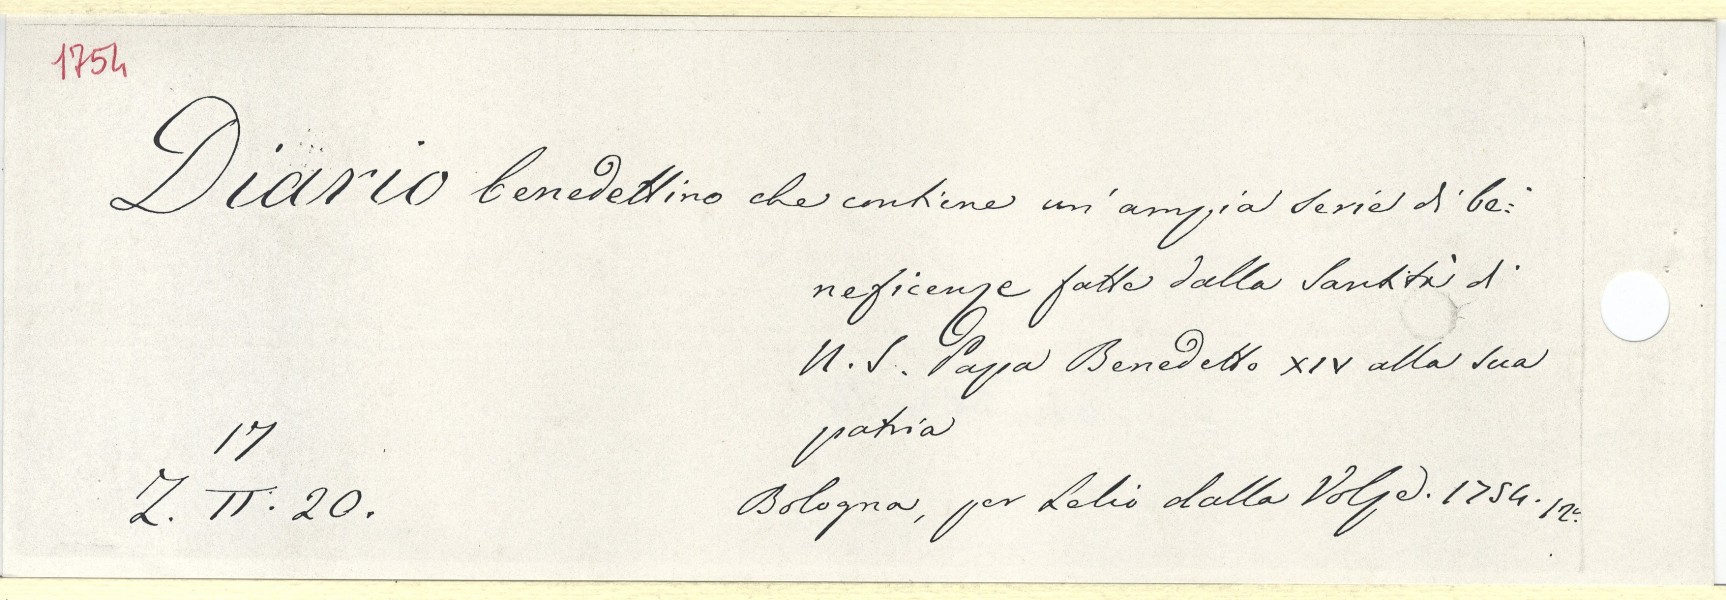 1754
Diario benedettino che contiene un'ampia serie di be=
neficenze fatte dalla Santità di
N. S. Papa Benedetto XIV alla sua
patria
17
Z. II. 20.
Bologna, per Lelio dalla Volpe. 1754. 12°.